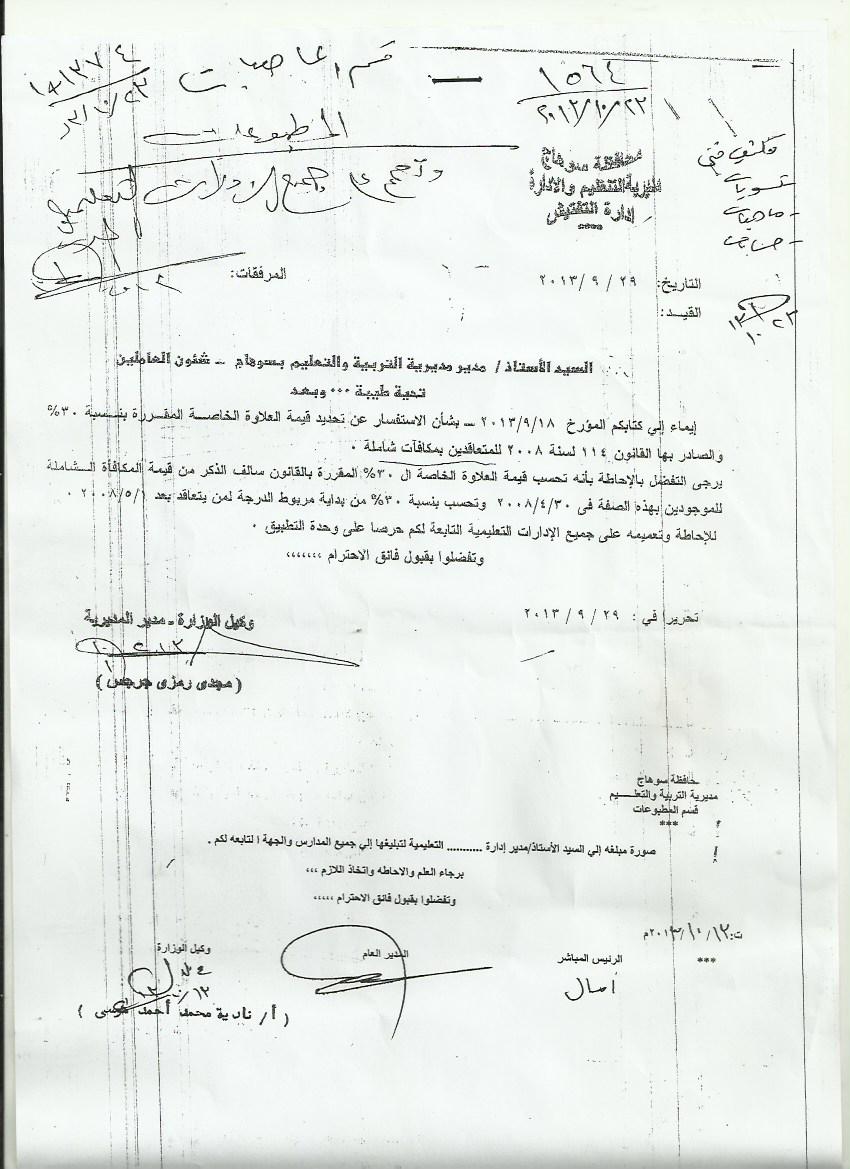 ١٥٦٤
٢٠١٣/١٠/٢٣
المطبوعات
محافظة سوهاج
مديرية التنظيم والإدارة
إدارة التفتيش
****
التاريخ: ٢٩ / ٩ / ٢٠١٣
المرفقات:
القيــد:
السيد الأستاذ / مدير مديرية التربية والتعليم بسوهاج - شئون العاملين
تحية طيبة ٠٠٠ وبعد
إيماء إلي كتابكم المؤرخ ٢٠١٣/٩/١٨ – بشأن الاستفسار عن تحديد قيمة العلاوة الخاصــة المقــررة بنســبة ٣٠%
والصادر بها القانون ١١٤ لسنة ٢٠٠٨ للمتعاقدين بمكافآت شاملة ٠
يرجى التفضل بالإحاطة بأنه تحسب قيمة العلاوة الخاصة ال ٣٠% المقررة بالقانون سالف الذكر من قيمة المكافأة الــشاملة
للموجودين بهذه الصفة فى ٢٠٠٨/٤/٣٠ وتحسب بنسبة ٣٠% من بداية مربوط الدرجة لمن يتعاقد بعد ٢٠٠٨/٥/١ ٠
للإحاطة وتعميمه على جميع الإدارات التعليمية التابعة لكم حرصا على وحدة التطبيق ٠
وتفضلوا بقبول فائق الاحترام ،،،،،،،
تحريرا في : ٢٩ / ٩ / ٢٠١٣
وكيل الوزارة - مدير المديرية
( مجدى رمزى جرجس )
محافظة سوهاج
مديرية التربية والتعلــيم
قسم المطبوعات
***
صورة مبلغه إلي السيد الأستاذ/مدير إدارة ........... التعليمية لتبليغها إلي جميع المدارس والجهة ا لتابعه لكم .
برجاء العلم والاحاطه واتخاذ اللازم ،،،
وتفضلوا بقبول فائق الاحترام ،،،،،
ت: ١٢/ ١٠/ ٢٠١٣م
***
الرئيس المباشر
المدير العام
وكيل الوزارة
أمال
( أ/ نادية محمد أحمد )